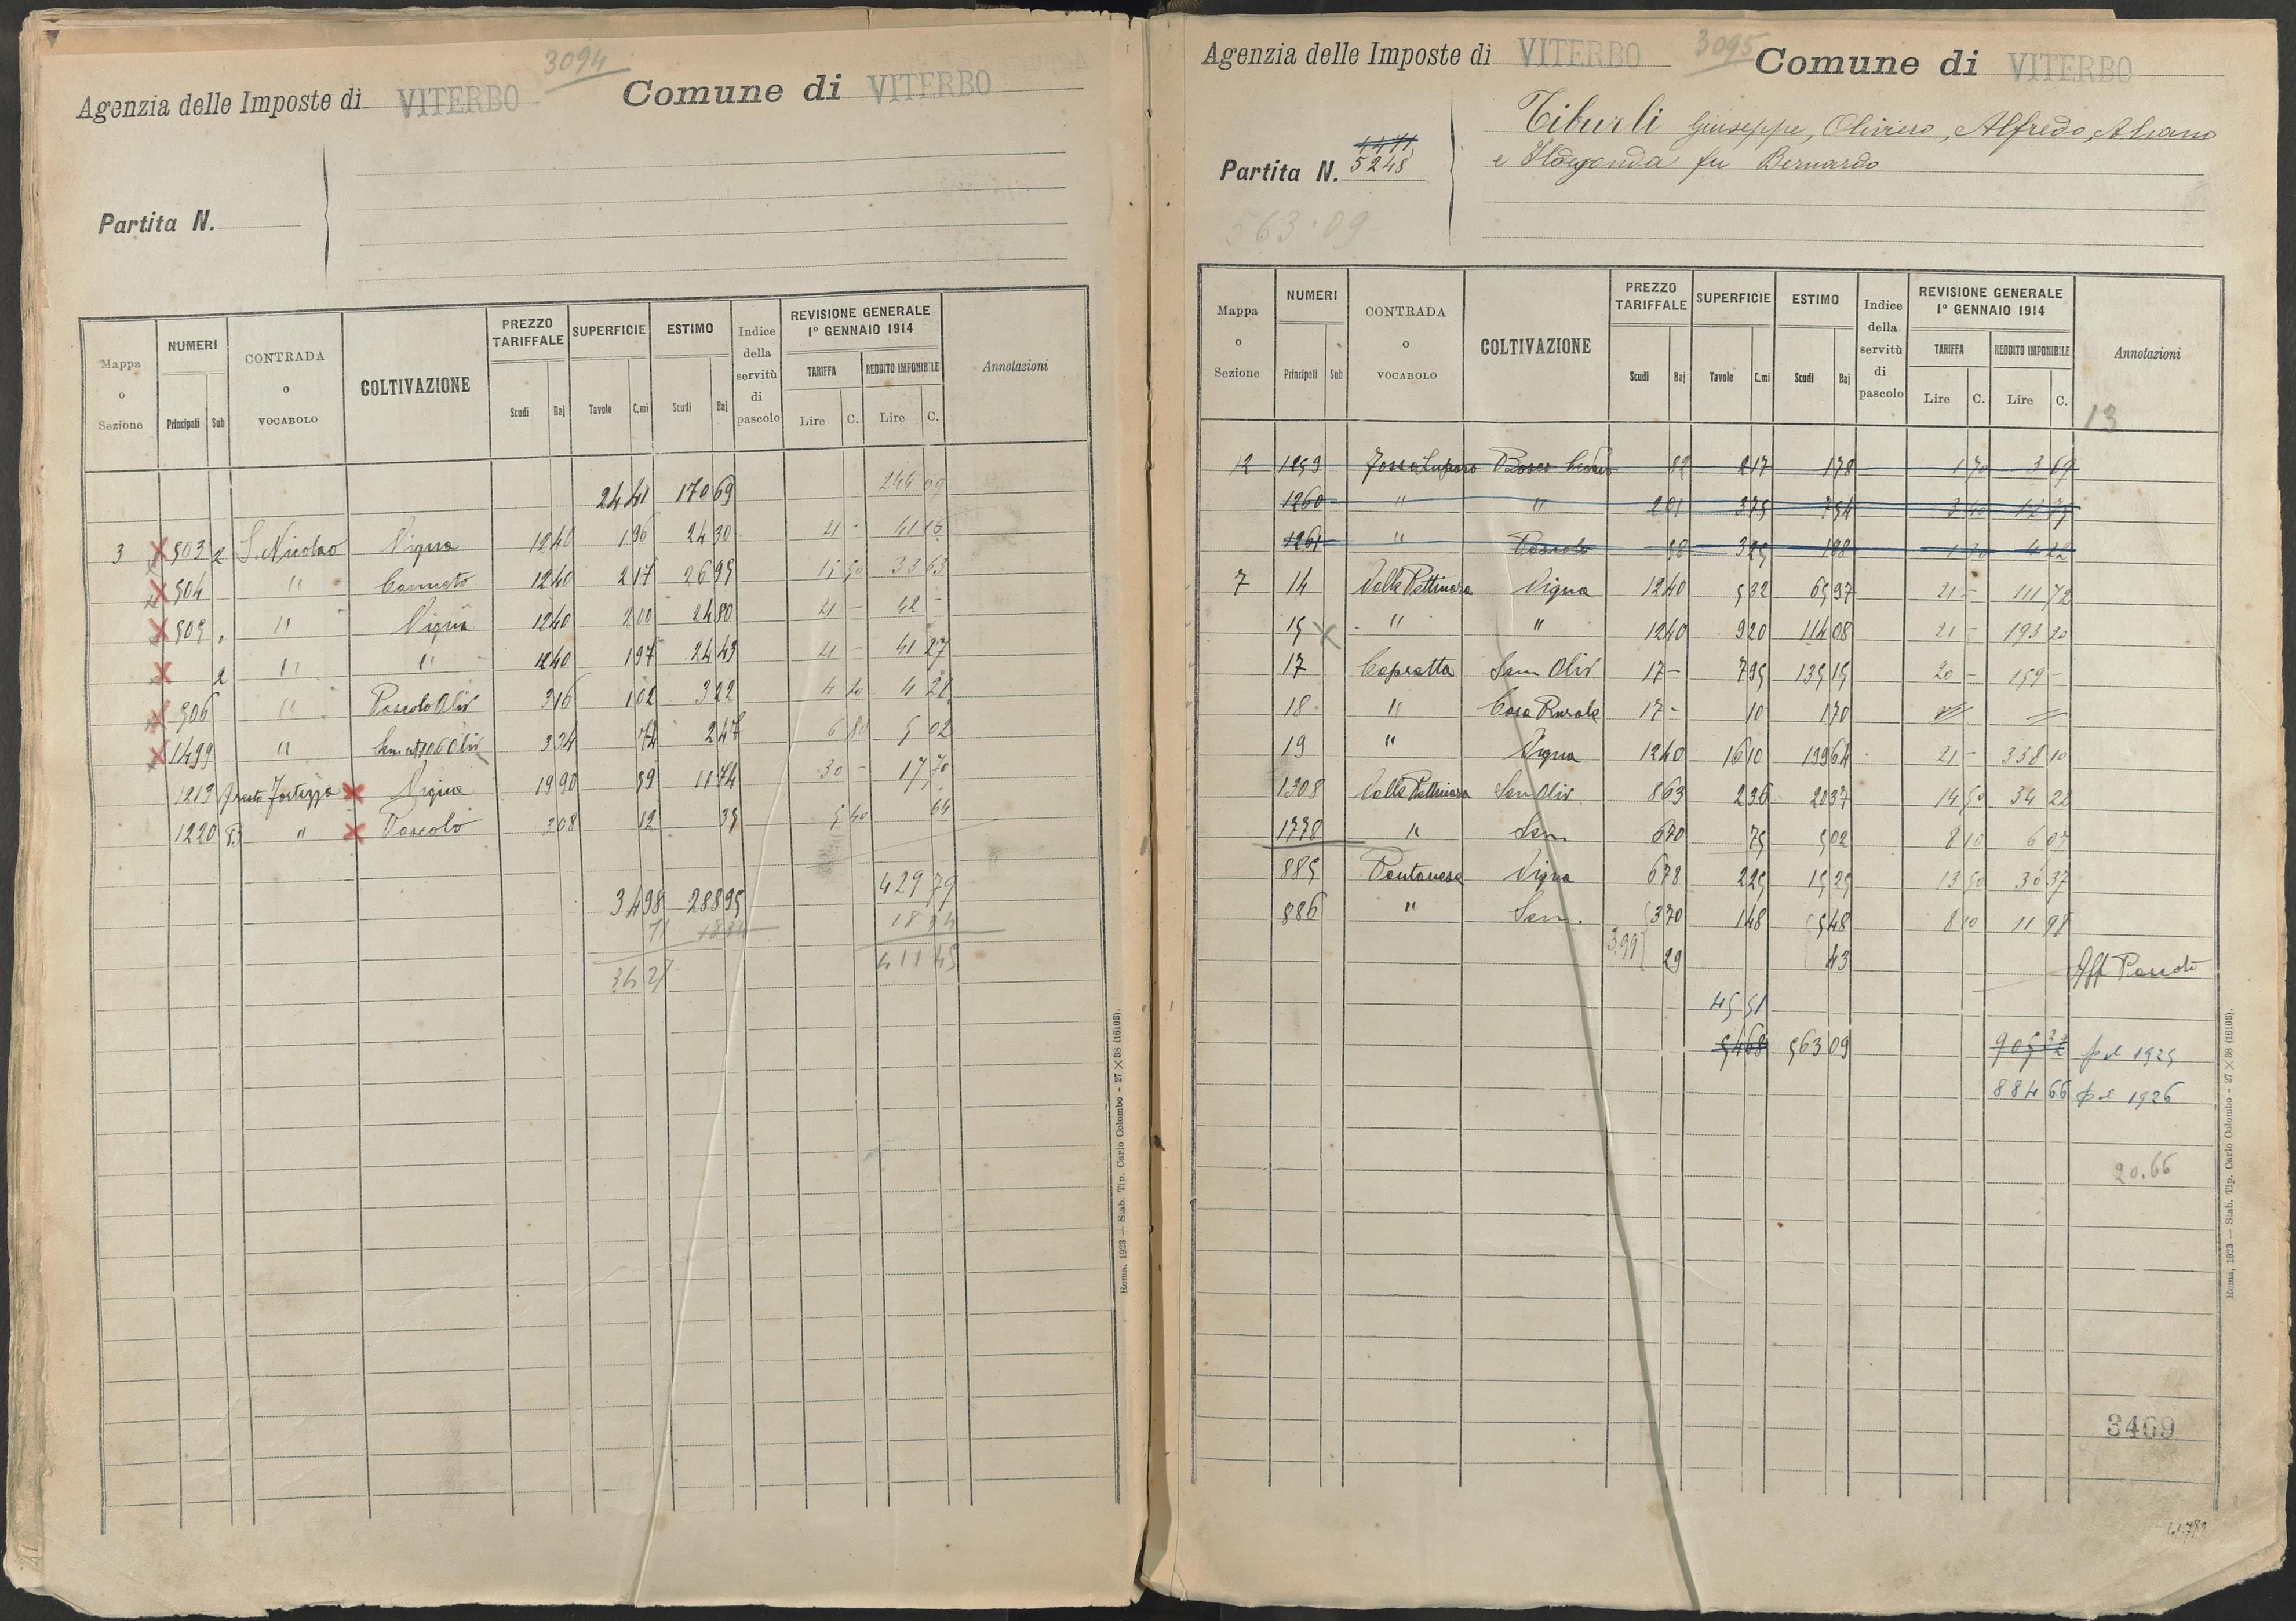 3094
Agenzia delle Imposte di VITERBO Comune di VITERBO
Partita N.
Mappa o Sezione NUMERI Principali Sub CONTRADA o VOCABOLO COLTIVAZIONE PREZZO TARIFFALE Scudi Baj SUPERFICIE Tavole C.mi ESTIMO Scudi Baj Indice della servitù di pascolo REVISIONE GENERALE 1° GENNAIO 1914 TARIFFA Lire C. REDDITO IMPONIBILE Lire C. Annotazioni
24 41 170 69 244 09
3 503 2 S. Nicolao Vigna 12 40 1 96 24 30 21 - 41 16
504 " Canneto 12 40 2 17 26 95 15 50 33 63
505 1 " Vigna 12 40 2 00 24 80 21 - 42 -
2 " " 12 40 1 97 24 43 21 - 41 27
506 " Pascolo Oliv 3 16 1 02 3 22 4 20 4 28
1499 " 3 34 74 2 47 6 80 5 02
1213 Prato Fortezza Vigna 19 90 59 11 74 30 - 17 70
1220 B " Pascolo 3 08 12 35 5 40 64
34 98 288 95 429 79
18 34
411 45
Roma, 1923 — Stab. Tip. Carlo Colombo - 27×38 (16103).
3095
Agenzia delle Imposte di VITERBO Comune di VITERBO
Tiburli Giuseppe, Oliviero, Alfredo,
4471
Partita N. 5248
e Ildegonda fu Bernardo
563.09
Mappa o Sezione NUMERI Principali Sub CONTRADA o VOCABOLO COLTIVAZIONE PREZZO TARIFFALE Scudi Baj SUPERFICIE Tavole C.mi ESTIMO Scudi Baj Indice della servitù di pascolo REVISIONE GENERALE 1° GENNAIO 1914 TARIFFA Lire C. REDDITO IMPONIBILE Lire C. Annotazioni
13
12 1259 Fosso Luparo Bosco Ceduo 82 2 17 1 78 1 70 3 69
1260 " " 2 01 3 75 7 54 3 40 12 75
1261 " Pascolo 58 3 25 1 88 1 30 4 22
7 14 Valle Pettinara Vigna 12 40 5 32 65 97 21 - 111 72
15 " " 12 40 9 20 114 08 21 - 193 20
17 Capretta Sem Oliv 17 - 7 95 135 15 20 - 159 -
18 " Casa Rurale 17 - 10 1 70
19 " Vigna 12 40 16 10 199 64 21 - 338 10
1308 Valle Pettinara Sem Oliv 8 63 2 36 20 37 14 50 34 22
1778 " Sem 6 70 75 5 02 8 10 6 07
885 Pontanese Vigna 6 78 2 25 15 25 13 50 30 37
886 " Sem. 3 70 1 48 5 48 8 10 11 98
3.99 29 43 Aff Pascolo
45 51
54 68 563 09 905 32 pel 1925
884 66 pel 1926
20.66
3469
Roma, 1923 — Stab. Tip. Carlo Colombo - 27×38 (16103).